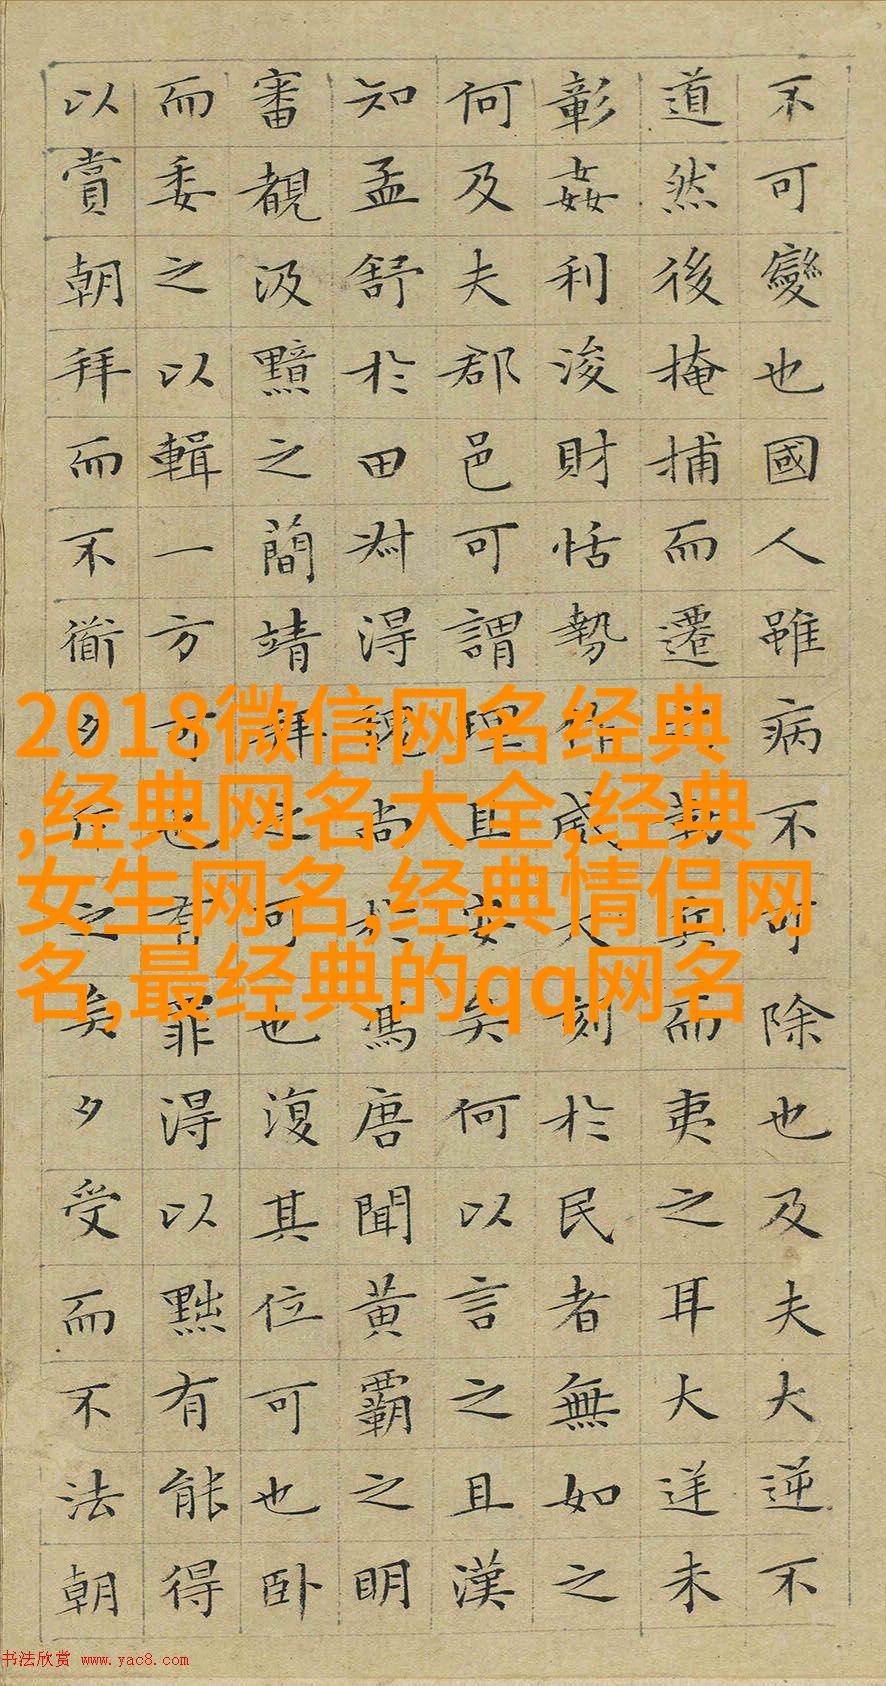 不可變也國人雖病不可除也及夫大逆不
道然後掩捕而遷之勒兵而夷之耳大逆未
彰姦利浚財怙勢作威大刻於民者無如之
何及夫郡邑可謂理且安矣何以言之且漢
知孟舒於田叔得魏尚於馮唐聞黃霸之明
審覩汲黯之簡靖拜之可也復其位可也卧
而委之以輯一方可也有罪得以黜有能得
以賞朝拜而不衜夕斥之矣夕受而不法朝
2018微信网名经典
,经典网名大全,经典
女生网名,经典情侣网
名,最经典的qq网名
书法欣赏 www.yac8.com